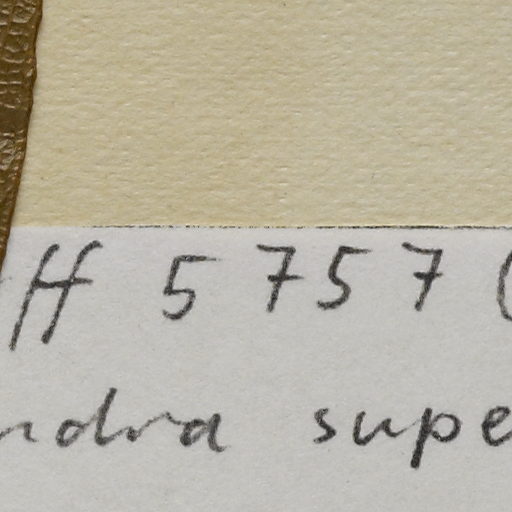 ff 5757 (
ndra supe